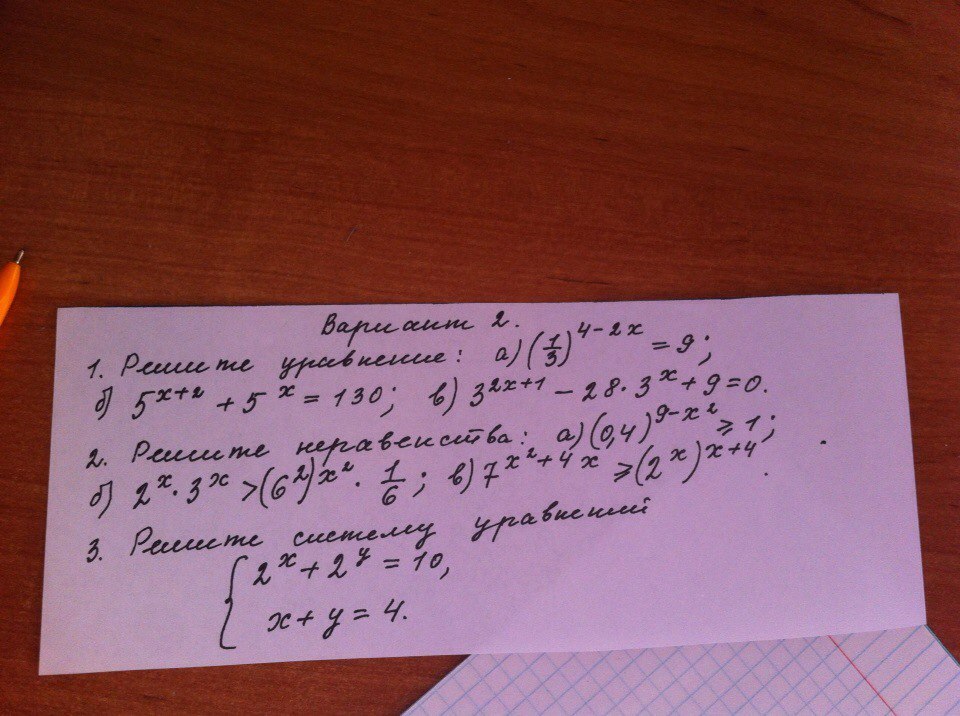 Вариант 2.
1. Решите уравнение: а) (1/3)^(4-2x) = 9;
б) 5^(x+2) + 5^x = 130; в) 3^(2x+1) - 28·3^x + 9 = 0.
2. Решите неравенства: а) (0,4)^(9-x^2) ≥ 1;
б) 2^x·3^x > (6^2)^(x^2)·1/6; в) 7^(x^2+4x) ≥ (2^x)^(x+4).
3. Решите систему уравнений
{2^x + 2^y = 10,
x + y = 4.